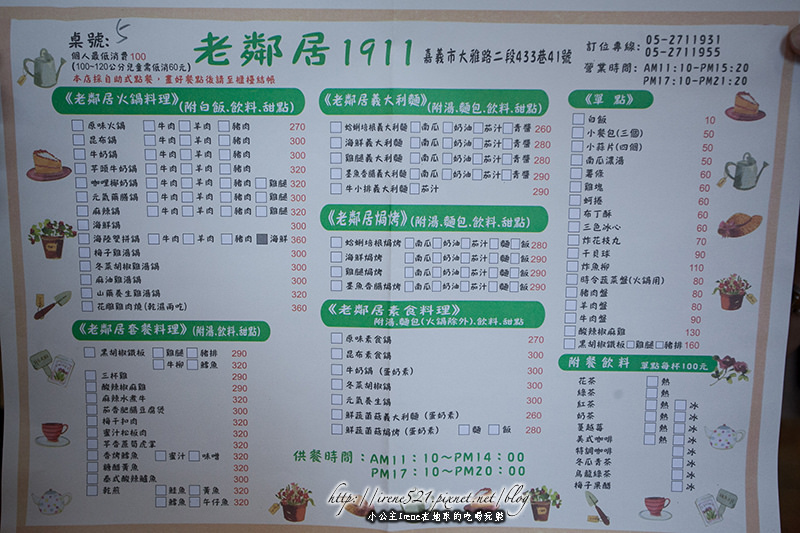 桌號: 5
個人最低消費100
(100~120公分兒童需低消60元)
本店採自助式點餐，畫好餐點後請至櫃檯結帳
老鄰居1911
嘉義市大雅路二段433巷41號
訂位專線: 05-2711931
05-2711955
營業時間: AM11:10-PM15:20
PM17:10-PM21:20
《老鄰居火鍋料理》(附白飯.飲料.甜點)
原味火鍋 牛肉 羊肉 豬肉 270
昆布鍋 牛肉 羊肉 豬肉 300
牛奶鍋 牛肉 羊肉 豬肉 300
芋頭牛奶鍋 牛肉 羊肉 豬肉 320
咖哩椰奶鍋 牛肉 羊肉 豬肉 雞腿 320
元氣藥膳鍋 牛肉 羊肉 豬肉 雞腿 320
麻辣鍋 牛肉 羊肉 豬肉 雞腿 320
海鮮鍋 300
海陸雙拼鍋 牛肉 羊肉 豬肉 海鮮 360
梅子雞湯鍋 300
冬菜胡椒雞湯鍋 300
麻油雞湯鍋 320
山藥養生雞湯鍋 320
花雕雞肉燒(乾濕兩吃) 360
《老鄰居套餐料理》(附湯.飲料.甜點)
黑胡椒鐵板 雞腿 豬排 290
牛柳 鱈魚 320
三杯雞 290
酸辣椒麻雞 290
麻辣水煮牛 320
茄香肥腸豆腐煲 320
梅干扣肉 300
蜜汁松板肉 300
芋香蒸蜀虎掌 300
香烤鱈魚 蜜汁 味噌 320
糖醋黃魚 320
泰式酸辣鱸魚 350
乾煎 鮭魚 黃魚 320
鱈魚 午仔魚 320
《老鄰居義大利麵》(附湯.麵包.飲料.甜點)
蛤蜊培根義大利麵 南瓜 奶油 茄汁 青醬 260
海鮮義大利麵 南瓜 奶油 茄汁 青醬 290
雞腿義大利麵 南瓜 奶油 茄汁 青醬 290
墨魚香腸義大利麵 南瓜 奶油 茄汁 青醬 290
牛小排義大利麵 茄汁 290
《老鄰居焗烤》(附湯.麵包.飲料.甜點)
蛤蜊培根焗烤 南瓜 奶油 茄汁 麵 飯 280
海鮮焗烤 南瓜 奶油 茄汁 麵 飯 290
雞腿焗烤 南瓜 奶油 茄汁 麵 飯 290
墨魚香腸焗烤 南瓜 奶油 茄汁 麵 飯 290
《老鄰居素食料理》
附湯.麵包(火鍋除外).飲料.甜點
原味素食鍋 270
昆布素食鍋 300
牛奶鍋(蛋奶素) 300
冬菜胡椒鍋 300
元氣養生鍋 300
鮮蔬菌菇義大利麵(蛋奶素) 260
鮮蔬菌菇焗烤(蛋奶素) 麵 飯 280
供餐時間：AM11：10~PM14：00
PM17：10~PM20：00
《單 點》
白飯 10
小餐包(三個) 50
小蒜片(四個) 50
南瓜濃湯 50
薯條 60
雞塊 60
蚵捲 60
布丁酥 60
三色冰心 60
炸花枝丸 70
干貝球 90
炸魚柳 110
時令蔬菜盤(火鍋用) 80
豬肉盤 80
羊肉盤 80
牛肉盤 90
酸辣椒麻雞 130
黑胡椒鐵板 雞腿 豬排 160
附餐飲料 單點每杯100元
花茶 熱
綠茶 熱
紅茶 熱 冰
奶茶 熱 冰
蔓越莓 熱 冰
美式咖啡 熱 冰
特調咖啡 冰
冬瓜青茶 冰
烏龍綠茶 冰
梅子果醋 冰
http://irene521.pixnet.net/blog
小公主Irene在地球的吃喝玩樂